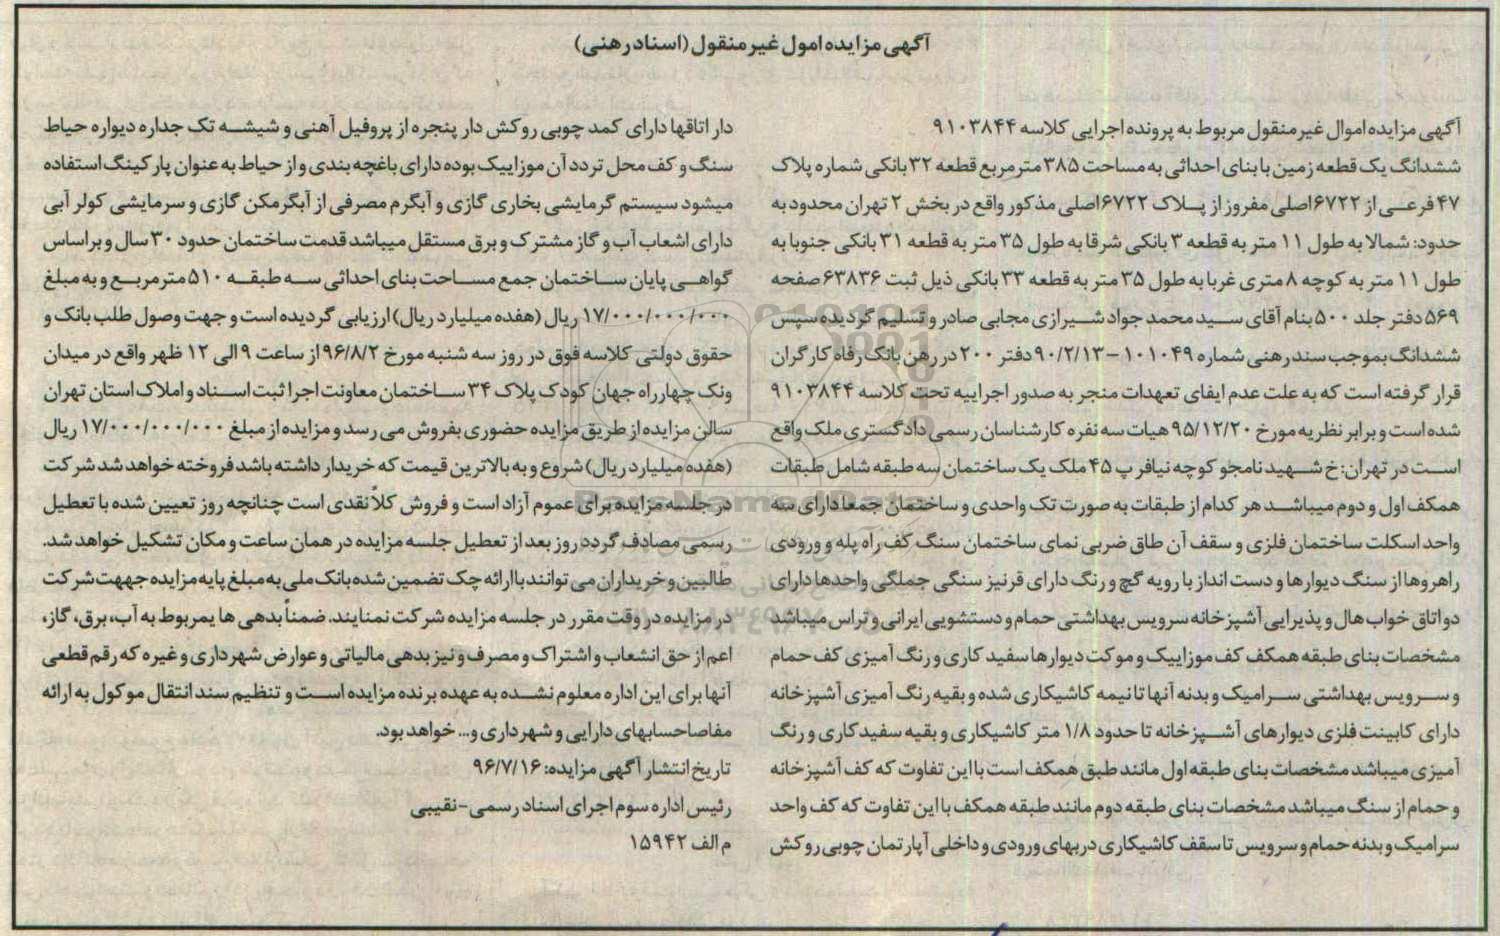 آگهی مزایده امول غیر منقول (اسناد رهنی)
آگهی مزایده اموال غیر منقول مربوط به پرونده اجرایی کلاسه ۹۱۰۳۸۴۴
ششدانگ یک قطعه زمین با بنای احداثی به مساحت ۳۸۵ متر مربع قطعه ۳۲ بانکی شماره پلاک
۴۷ فرعی از ۶۷۲۲ اصلی مفروز از پلاک ۶۷۲۲ اصلی مذکور واقع در بخش ۲ تهران محدود به
حدود: شمالا به طول ۱۱ متر به قطعه ۳ بانکی شرقا به طول ۳۵ متر به قطعه ۳۱ بانکی جنوبا به
طول ۱۱ متر به کوچه ۸ متری غربا به طول ۳۵ متر به قطعه ۳۳ بانکی ذیل ثبت ۶۳۸۳۶ صفحه
۵۶۹ دفتر جلد ۵۰۰ بنام آقای سید محمد جواد شیرازی مجابی صادر و تسلیم گردیده سپس
ششدانگ بموجب سند رهنی شماره ۱۰۱۰۴۹ – ۹۰/۲/۱۳ دفتر ۲۰۰ در رهن بانک رفاه کارگران
قرار گرفته است که به علت عدم ایفای تعهدات منجر به صدور اجراییه تحت کلاسه ۹۱۰۳۸۴۴
شده است و برابر نظریه مورخ ۹۵/۱۲/۲۰ هیات سه نفره کارشناسان رسمی دادگستری ملک واقع
است در تهران: خ شهید نامجو کوچه نیافر پ ۴۵ ملک یک ساختمان سه طبقه شامل طبقات
همکف اول و دوم میباشد هر کدام از طبقات به صورت تک واحدی و ساختمان جمعا دارای سه
واحد اسکلت ساختمان فلزی و سقف آن طاق ضربی نمای ساختمان سنگ کف راه پله و ورودی
راهروها از سنگ دیوارها و دست انداز با رویه گچ و رنگ دارای قرنیز سنگی جملگی واحدها دارای
دو اتاق خواب هال و پذیرایی آشپزخانه سرویس بهداشتی حمام و دستشویی ایرانی و تراس میباشد
مشخصات بنای طبقه همکف کف موزاییک و موکت دیوارها سفید کاری و رنگ آمیزی کف حمام
و سرویس بهداشتی سرامیک و بدنه آنها تا نیمه کاشیکاری شده و بقیه رنگ آمیزی آشپزخانه
دارای کابینت فلزی دیوارهای آشپزخانه تا حدود ۱/۸ متر کاشیکاری و بقیه سفید کاری و رنگ
آمیزی میباشد مشخصات بنای طبقه اول مانند طبق همکف است با این تفاوت که کف آشپزخانه
و حمام از سنگ میباشد مشخصات بنای طبقه دوم مانند طبقه همکف با این تفاوت که کف واحد
سرامیک و بدنه حمام و سرویس تا سقف کاشیکاری دربهای ورودی و داخلی آپارتمان چوبی روکش
دار اتاقها دارای کمد چوبی روکش دار پنجره از پروفیل آهنی و شیشه تک جداره دیواره حیاط
سنگ و کف محل تردد آن موزاییک بوده دارای باغچه بندی و از حیاط به عنوان پارکینگ استفاده
میشود سیستم گرمایشی بخاری گازی و آبگرم مصرفی از آبگرمکن گازی و سرمایشی کولر آبی
دارای اشعاب آب و گاز مشترک و برق مستقل میباشد قدمت ساختمان حدود ۳۰ سال و براساس
گواهی پایان ساختمان جمع مساحت بنای احداثی سه طبقه ۵۱۰ متر مربع و به مبلغ
۱۷/۰۰۰/۰۰۰/۰۰۰ ریال (هفده میلیارد ریال) ارزیابی گردیده است و جهت وصول طلب بانک و
حقوق دولتی کلاسه فوق در روز سه شنبه مورخ ۹۶/۸/۲ از ساعت ۹ الی ۱۲ ظهر واقع در میدان
ونک چهارراه جهان کودک پلاک ۳۴ ساختمان معاونت اجرا ثبت اسناد و املاک استان تهران
سالن مزایده از طریق مزایده حضوری بفروش می رسد و مزایده از مبلغ ۱۷/۰۰۰/۰۰۰/۰۰۰ ریال
(هفده میلیارد ریال) شروع و به بالاترین قیمت که خریدار داشته باشد فروخته خواهد شد شرکت
در جلسه مزایده برای عموم آزاد است و فروش کلاً نقدی است چنانچه روز تعیین شده با تعطیل
رسمی مصادف گردد روز بعد از تعطیل جلسه مزایده در همان ساعت و مکان تشکیل خواهد شد.
طالبین و خریداران می توانند با ارائه چک تضمین شده بانک ملی به مبلغ پایه مزایده جههت شرکت
در مزایده در وقت مقرر در جلسه مزایده شرکت نمنایند. ضمناً بدهی ها یمربوط به آب، برق، گاز،
اعم از حق انشعاب و اشتراک و مصرف و نیز بدهی مالیاتی و عوارض شهرداری و غیره که رقم قطعی
آنها برای این اداره معلوم نشده به عهده برنده مزایده است و تنظیم سند انتقال موکول به ارائه
مفاصاحسابهای دارایی و شهرداری و... خواهد بود.
تاریخ انتشار آگهی مزایده: ۹۶/۷/۱۶
رئیس اداره سوم اجرای اسناد رسمی-نقیبی
م الف ۱۵۹۴۲
ParsNamadData